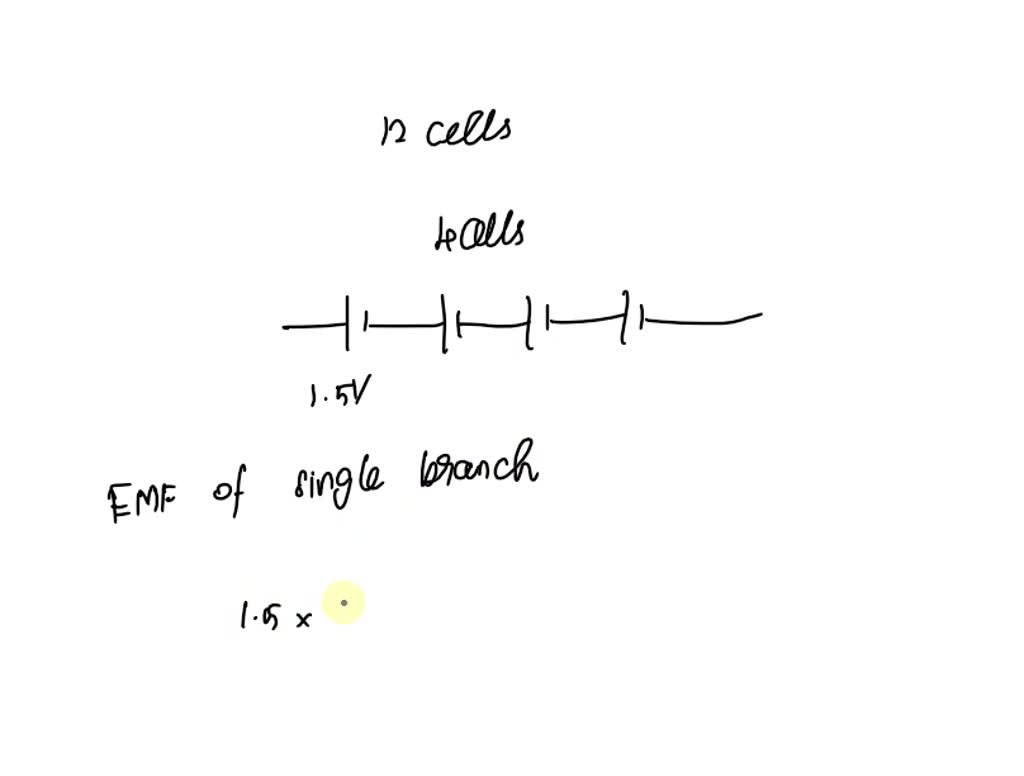 12 cells
4 cells
1.5V
EMF of single branch
1.5 ×